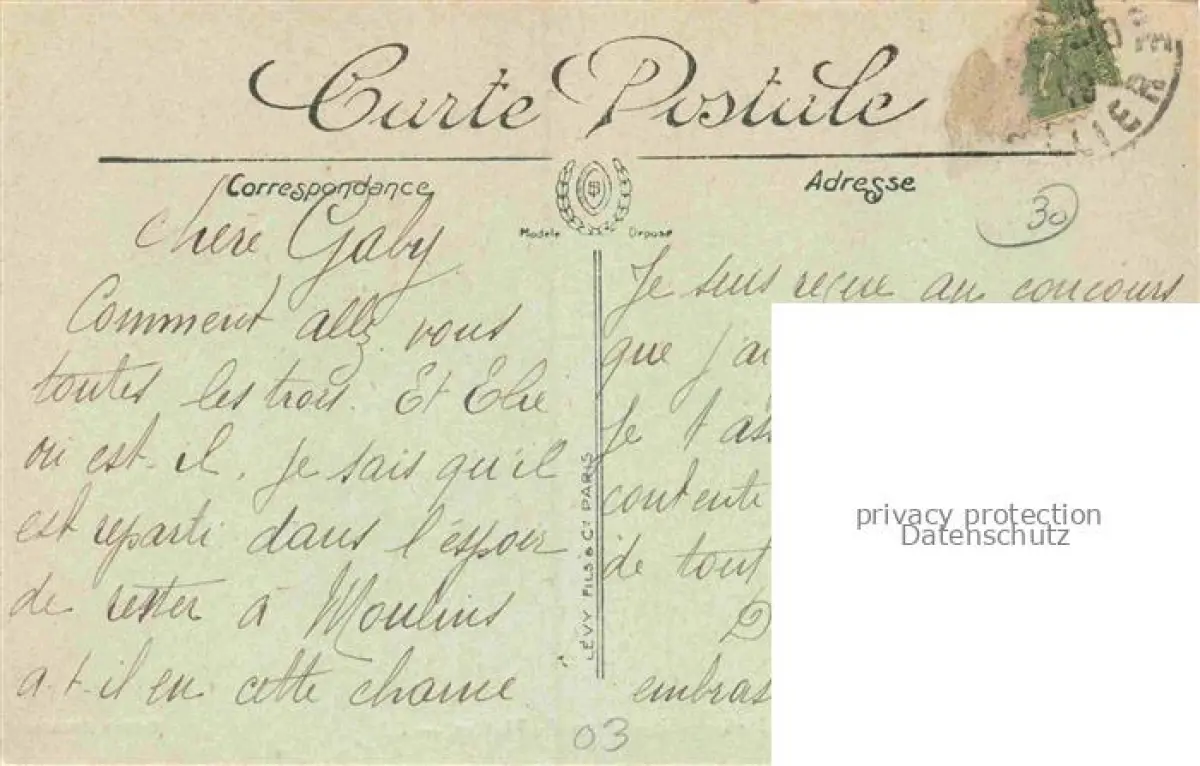 Carte Postale
Correspondance
Adresse
Modèle Déposé
30
Chère Gaby
Comment allez vous
toutes les trois. Et Elie
où est-il. Je sais qu'il
est reparti dans l'éspoir
de rester à Moulins
a-t-il eu cette chance
LÉVY FILS & Cie PARIS
Je suis reçue au concours
que j'ai
Je t'ass
contente
de tout
embras
privacy protection
Datenschutz
03